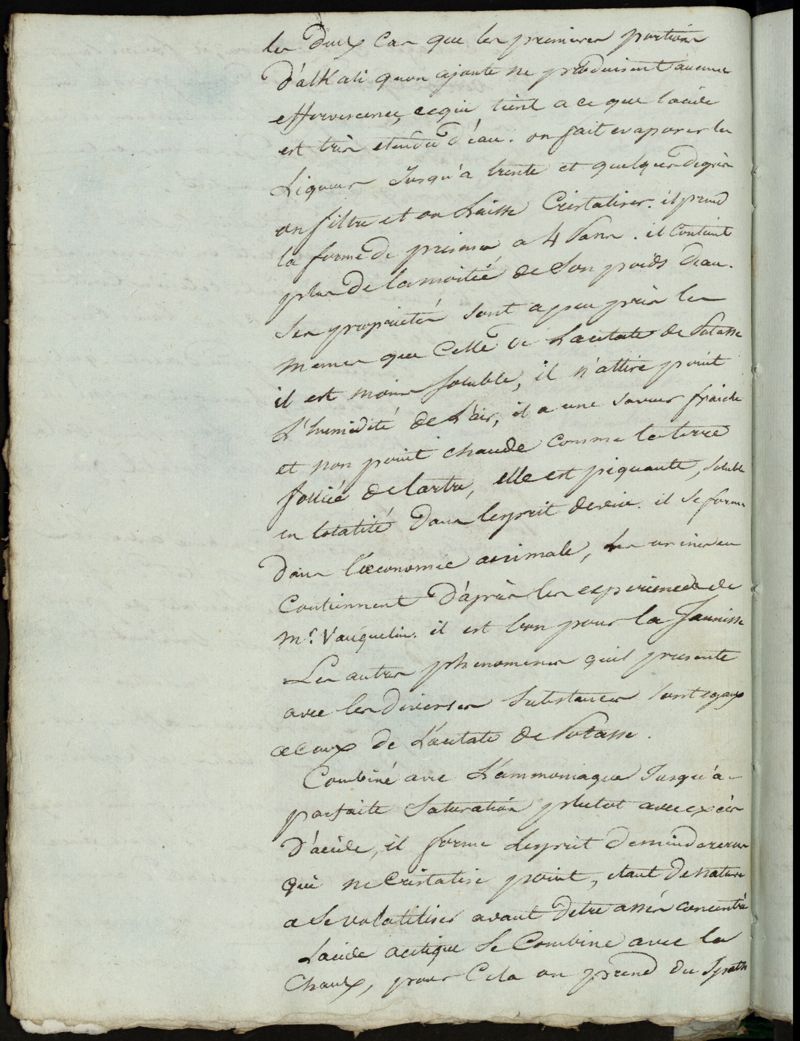 les deux car que les premieres portions
d'alkali quon ajoute ne produisent aucune
effervescence, cequi tient a ce que lacide
est très etendu d'eau. on fait evaporer la
Liqueur Jusqu'à trente et quelques degrés
on filtre et on Laisse Cristaliser. il prend
la forme de prismes a 4 Pans. il Contient
plus de la moitié de Son poids deau.
Ses proprietés sont apeu près les
memes que Celle de Lacetate de Potasse
il est moins soluble, il n'attire point
L'humidité de L'air, il a une saveur fraiche
et non point chaude comme la terre
foliée de tartre, elle est piquante, soluble
en totalité dans lesprit devin. il se forme
dans l'œconomie animale, les urines en
Contiennent d'après les experiences de
mr. Vauquelin. il est bon pour la Jaunisse
Les autres phenomenes quil presente
avec les diverses substances sont egaux
a ceux de L'acetate de Potasse.
Combiné avec L'ammoniaque Jusqu'à
parfaite Saturation plutot avec excès
D'acide, il forme lesprit demindererus
qui ne Cristalise point, etant de nature
a Se volatiliser avant d'etre assés concentré
Lacide acetique Se Combine avec la
Chaux, pour Cela on prend du Spath